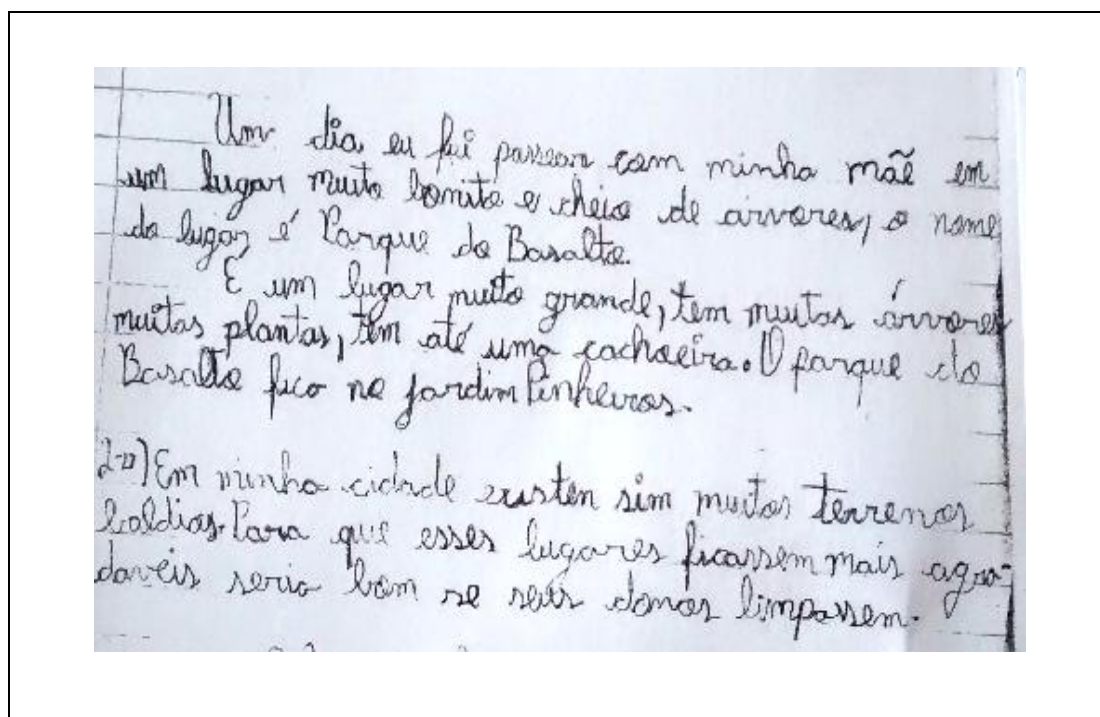 Um dia eu fui passear com minha mãe em
um lugar muito bonito e cheio de arvores, o nome
do lugar é Parque do Basalto.
É um lugar muito grande, tem muitas árvores
muitas plantas, tem até uma cachoeira. O parque do
Basalto fica no jardim Pinheiros.
2-a) Em minha cidade existen sim muitos terrenos
baldios. Para que esses lugares ficassem mais agra-
daveis seria bom se seus donos limpassem.